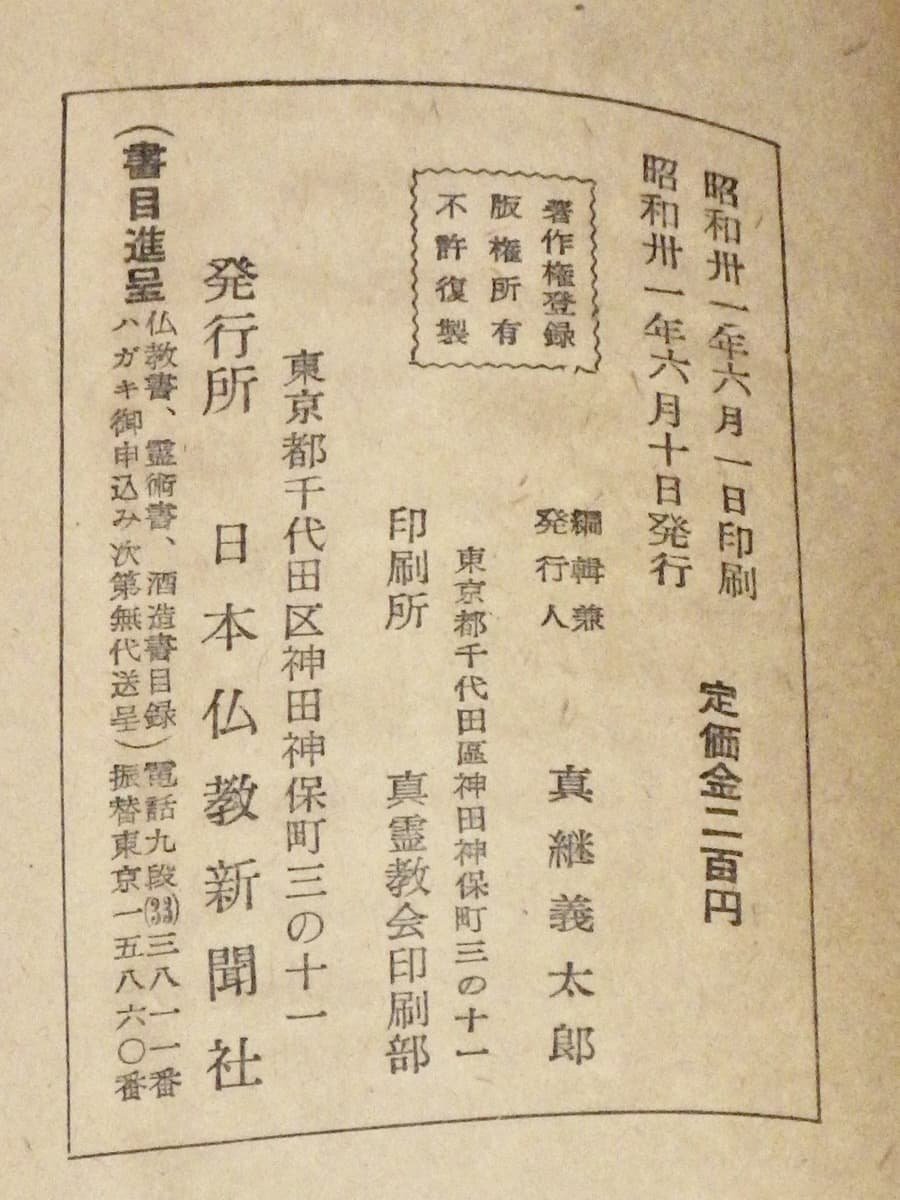 昭和卅一年六月一日印刷
昭和卅一年六月十日発行
定価金二百円
著作権登録
版権所有
不許復製
編輯兼
発行人
真継義太郎
東京都千代田區神田神保町三の十一
印刷所 真霊教会印刷部
東京都千代田区神田神保町三の十一
発行所 日本仏教新聞社
(書目進呈 仏教書、霊術書、酒造書目録
ハガキ御申込み次第無代送呈)
電話九段(33)三八一一番
振替東京一五八六〇番